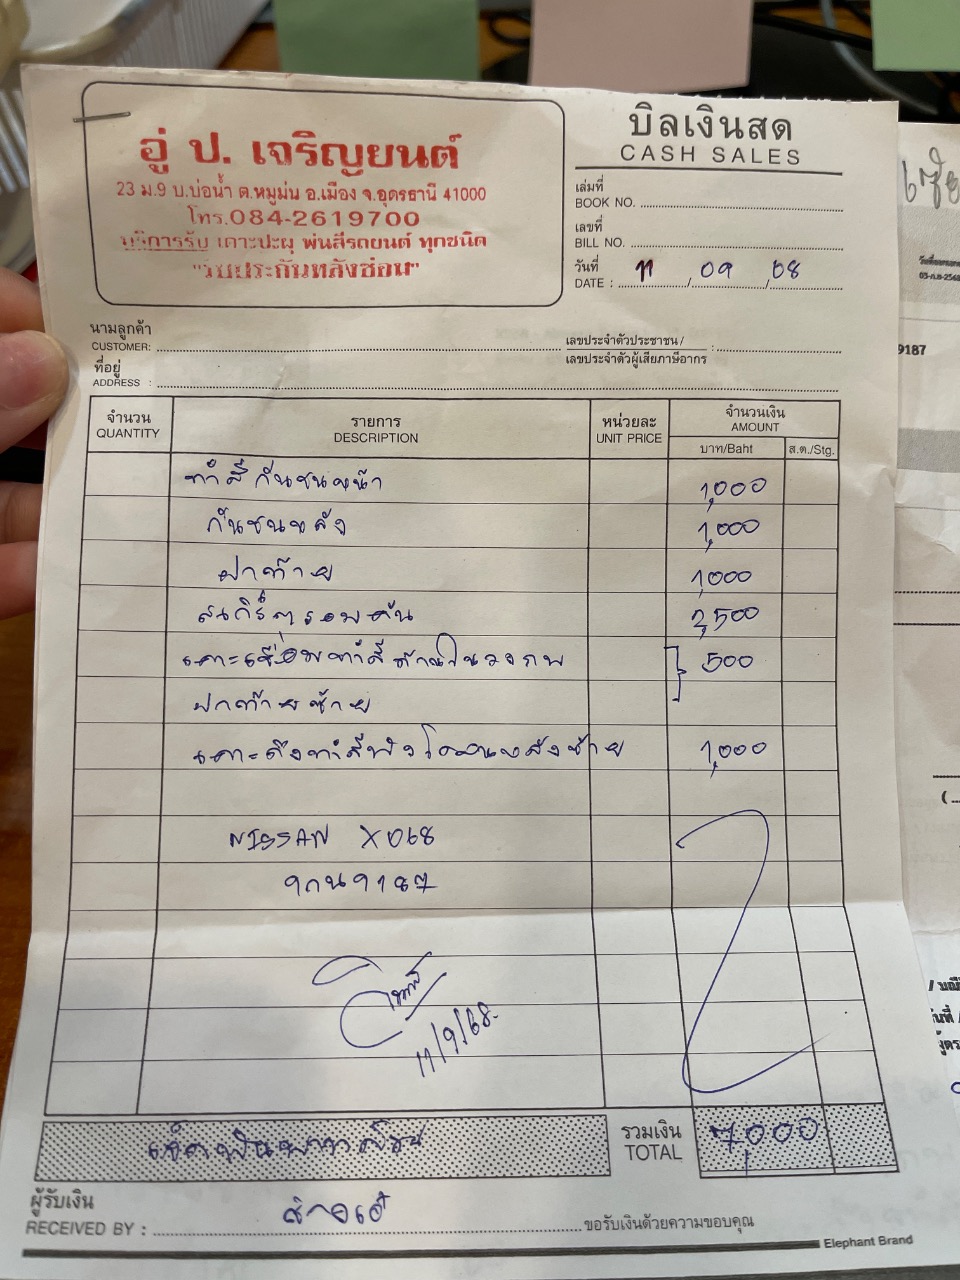 อู่ ป. เจริญยนต์
23 ม.9 บ.บ่อน้ำ ต.หมูม่น อ.เมือง จ.อุดรธานี 41000
โทร.084-2619700
บริการรับ เคาะปะผุ พ่นสีรถยนต์ ทุกชนิด
"รับประกันหลังซ่อม"
บิลเงินสด
CASH SALES
เล่มที่
BOOK NO.
เลขที่
BILL NO.
วันที่
DATE : 11 / 09 / 08
นามลูกค้า
CUSTOMER:
เลขประจำตัวประชาชน /
เลขประจำตัวผู้เสียภาษีอากร :
ที่อยู่
ADDRESS :
จำนวน
QUANTITY
รายการ
DESCRIPTION
หน่วยละ
UNIT PRICE
จำนวนเงิน
AMOUNT
บาท/Baht
ส.ต./Stg.
ทำสีกันชนหน้า 1,000
กันชนหลัง 1,000
ฝาท้าย 1,000
สเกิร์ตรอบคัน 2,500
เคาะเชื่อมทำสีด้านในวงกบ 500
ฝาท้ายซ้าย
เคาะดึงทำสีบังโคลนหลังซ้าย 1,000
NISSAN X068
9กน9187
11/9/68
เจ็ดพันบาทถ้วน
รวมเงิน
TOTAL
7,000
ผู้รับเงิน
RECEIVED BY :
ขอรับเงินด้วยความขอบคุณ
Elephant Brand
9187